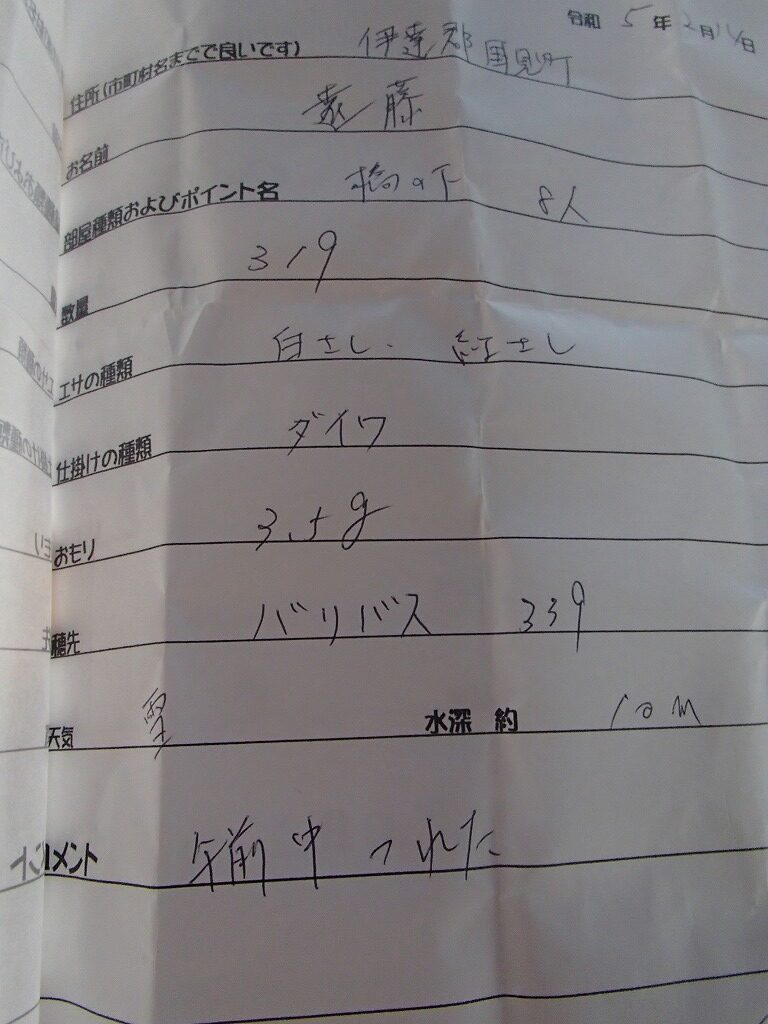 令和 5年2月11日
住所(市町村名までで良いです) 伊達郡国見町
お名前 遠藤
部屋種類およびポイント名 橋の下 8人
数量 319
エサの種類 白さし. 紅さし
仕掛けの種類 ダイワ
おもり 3.5g
穂先 バリバス 339
天気 雪 水深 約 10m
コメント 午前中つれた